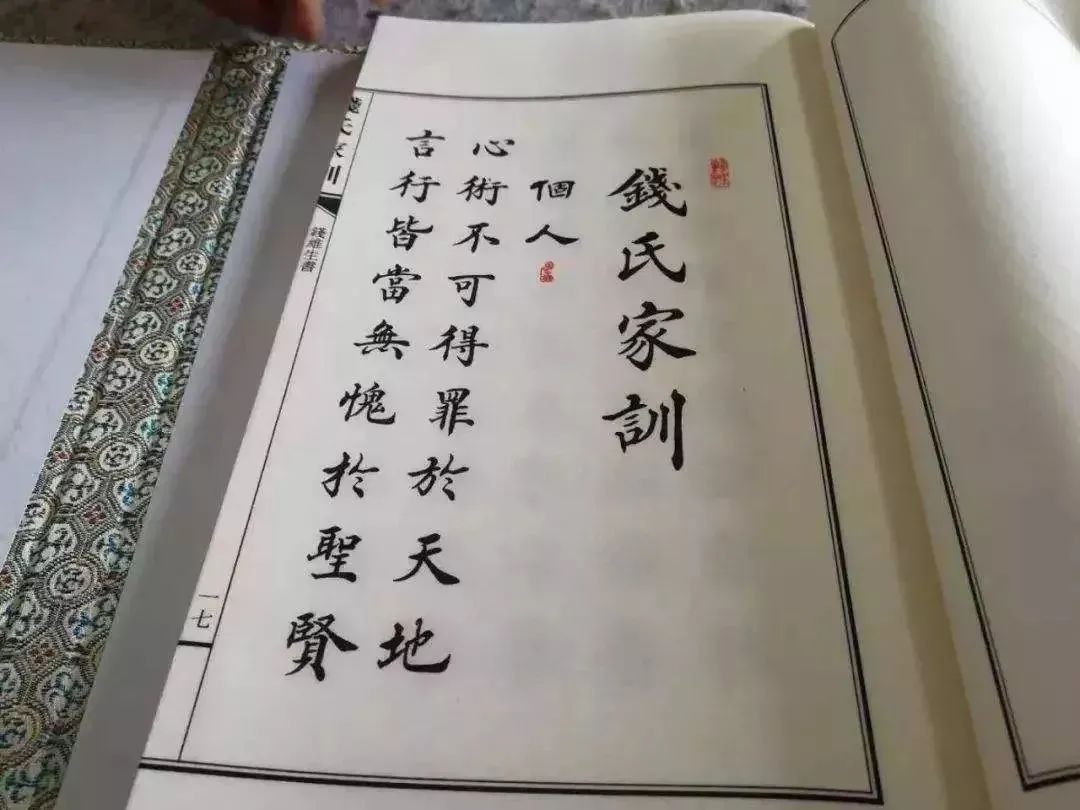 錢氏家訓
個人
心術不可得罪於天地
言行皆當無愧於聖賢
錢氏家訓
錢維生書
一七